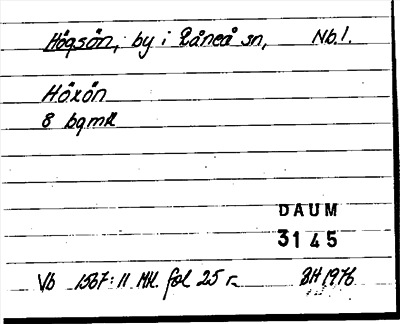 Högsön, by i Råneå sn, Nb.l.
Höxön
8 bqmk
DAUM
3145
Vb 1567:11 Mk. fol 25 r. BH 1976